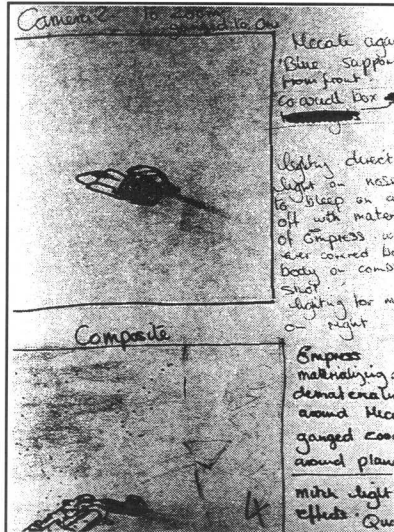 Camera 2 to zoom
ganged to One
Hecate aga
"Blue Suppo
from front
co axial box
lighting direct
light on nose
to bleep on a
off with mater
of Empress
ever covered bo
body on
shot
lighting for m
on right
Composite
Empress
materializing
dematerializ
around Heca
ganged zoom
around plane
4
light
effects. Qu